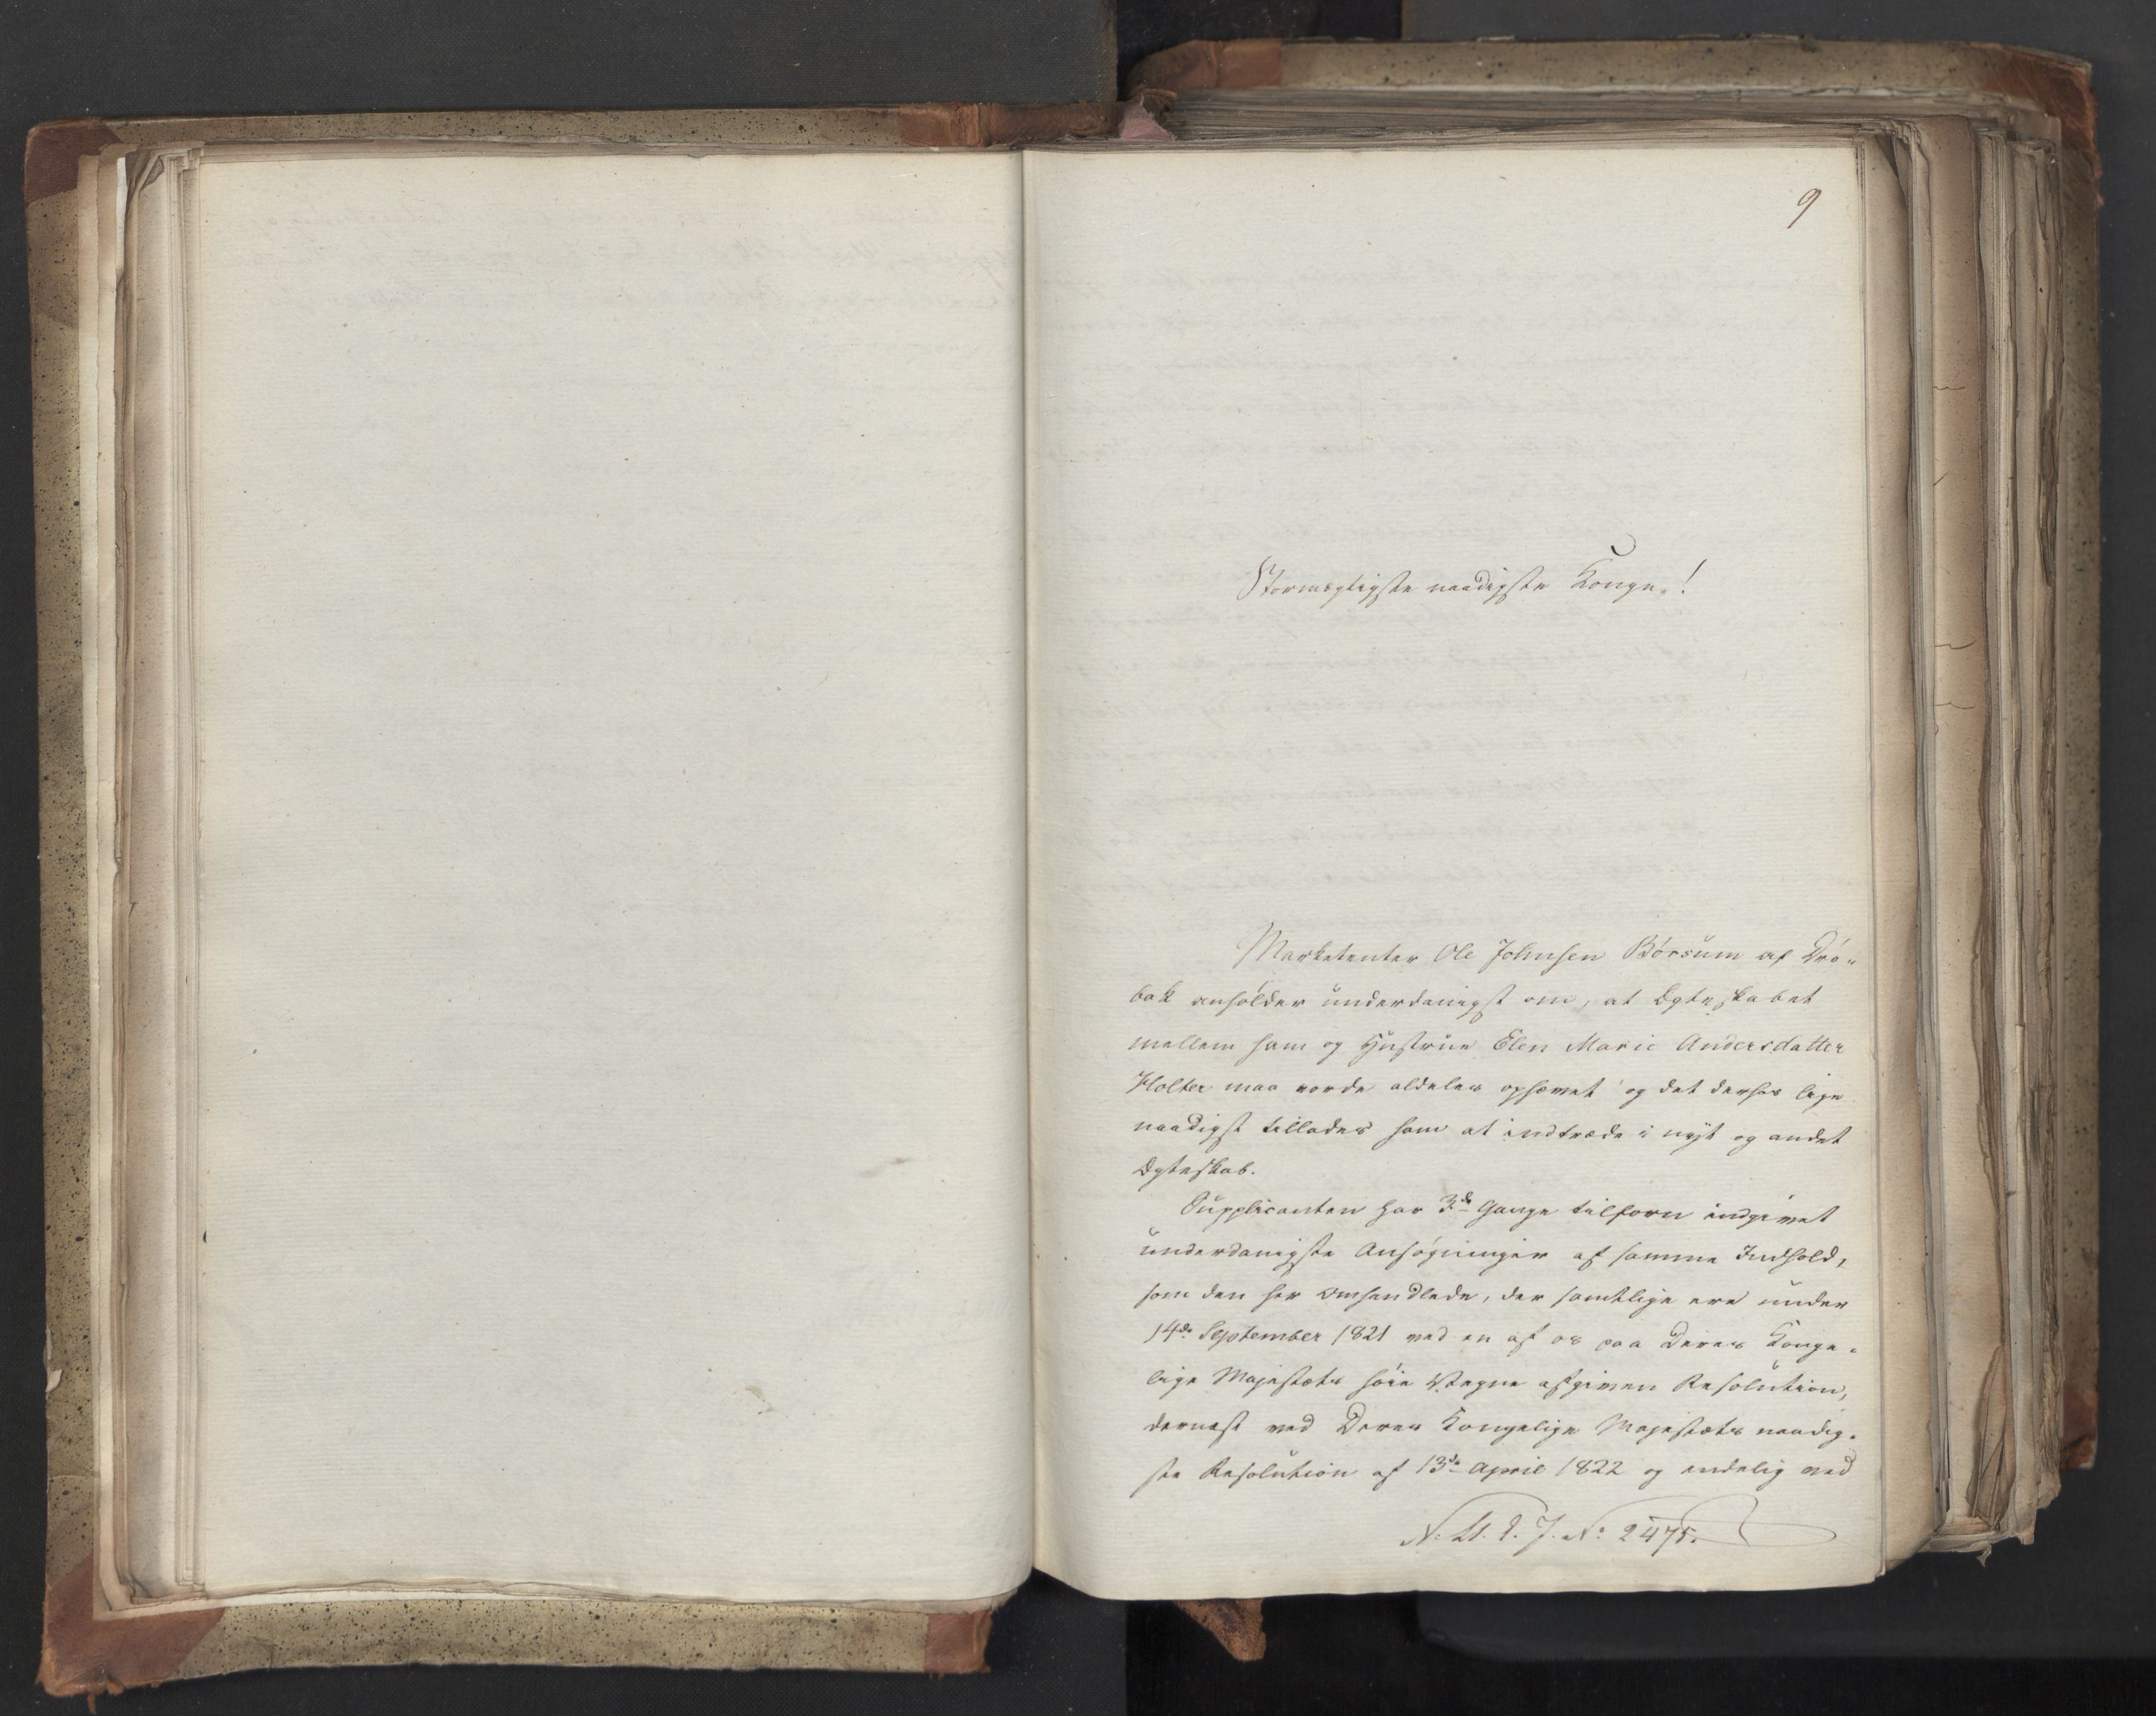 9
Stormægtigste naadigste Konge!
Marketenter Ole Johnsen Börsum af Drö-
bak anholder underdanigst om, at Egteskabet
mellem ham og Hustrue Elen Marie Andersdatter
Holter maa vorde aldeles ophævet og det derhos lige
naadigst tillades ham at indtræde i nyt og andet
Egteskab.
Supplicanten har 3de Gange tilforn indgivet
underdanigste Ansøgninger af samme Indhold,
som den her omhandlede, der samtlige ere under
14de September 1821 ved en af os paa Deres Konge-
lige Majestæts høie Vegne afgiven Resolution,
dernæst ved Deres Kongelige Majestæts naadig-
ste Resolution af 13de April 1822 og endelig ved
No 2475.